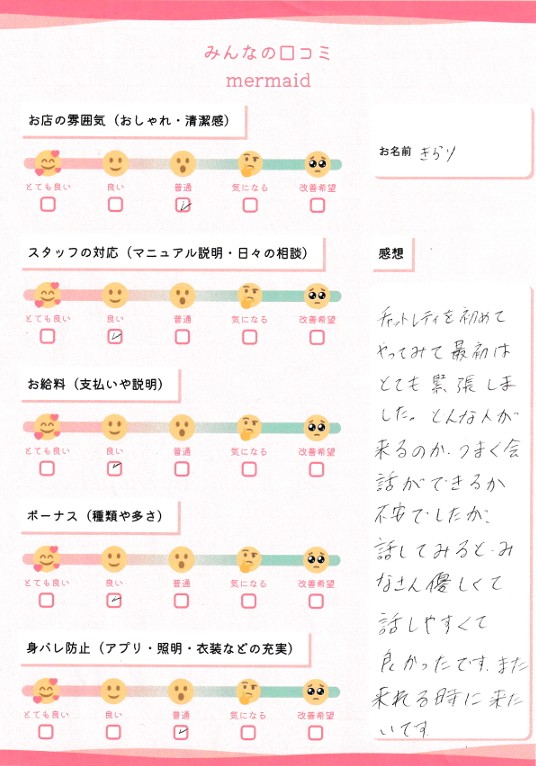 みんなの口コミ
mermaid
お店の雰囲気（おしゃれ・清潔感）
とても良い 良い 普通 気になる 改善希望
スタッフの対応（マニュアル説明・日々の相談）
とても良い 良い 普通 気になる 改善希望
お給料（支払いや説明）
とても良い 良い 普通 気になる 改善希望
ボーナス（種類や多さ）
とても良い 良い 普通 気になる 改善希望
身バレ防止（アプリ・照明・衣装などの充実）
とても良い 良い 普通 気になる 改善希望
お名前 きらり
感想
チャットレディを初めて
やってみて最初は
とても緊張しま
した。どんな人が
来るのか、うまく会
話ができるか
不安でしたが、
話してみると、み
なさん優しくて
話しやすくて
良かったです。また
来れる時に来た
いです。